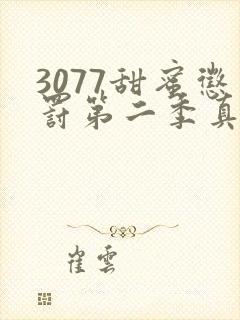 3077甜蜜懲
罰第二季真
崔雲